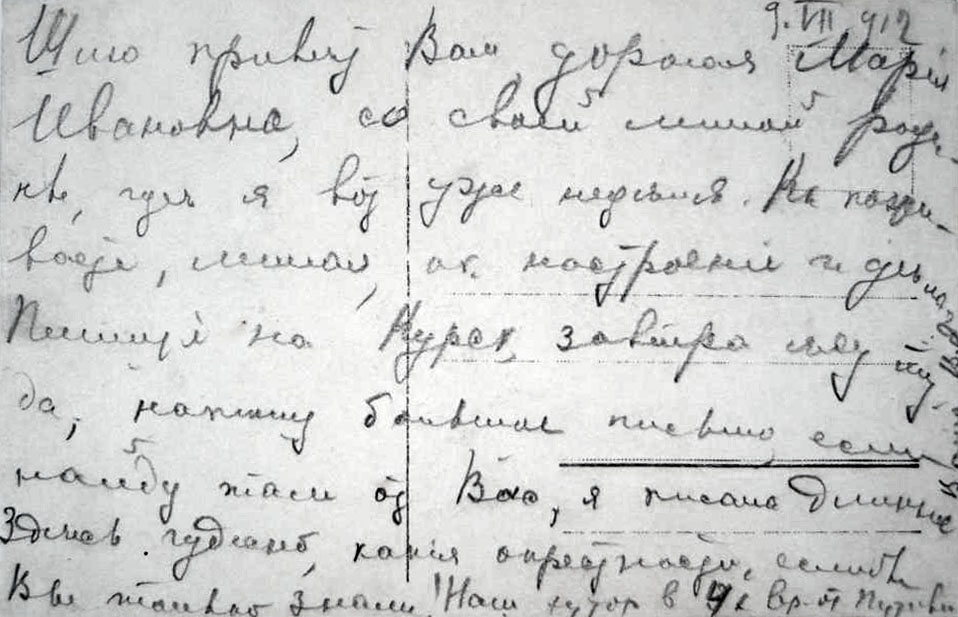 9.VII.912
Шлю привет Вам, дорогая Марія
Ивановна, со своей милой роди-
нѣ, где я вот уже недѣля. Какъ пожи-
ваете, милая, настроеніе и дѣла
Пишите на Курск, завтра еду ту-
да, напишу большое письмо, если
найду там от Вас, я писала длинное
Здесь чудесно, какія окрестности, если бы
Вы только знали! Наш хутор в вер. от